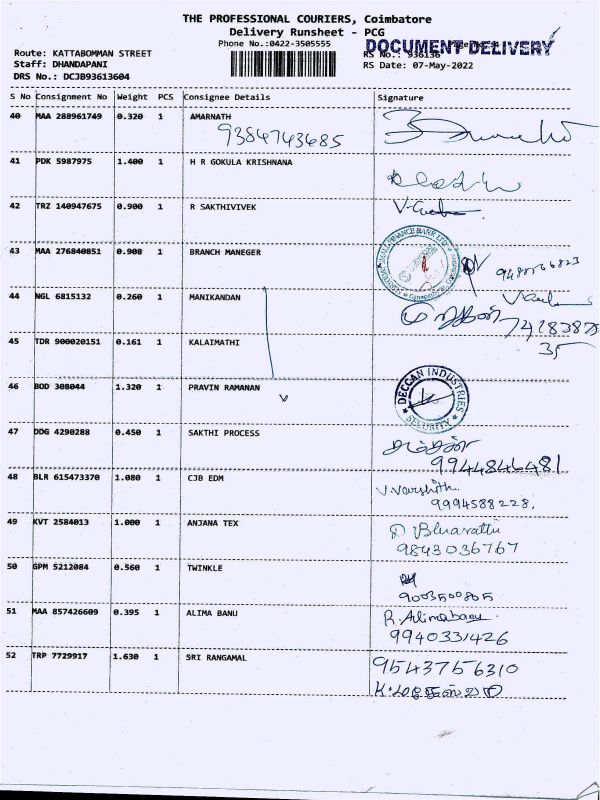 THE PROFESSIONAL COURIERS, Coimbatore
Delivery Runsheet - PCG
Phone No.:0422-3505555
DOCUMENT DELIVERY
Route: KATTABOMMAN STREET
RS No.: 936136
Staff: DHANDAPANI
RS Date: 07-May-2022
DRS No.: DCJB93613604
S No Consignment No Weight PCS Consignee Details Signature
40 MAA 288961749 0.320 1 AMARNATH
9384743685
41 PDK 5987975 1.400 1 H R GOKULA KRISHNANA
42 TRZ 140947675 0.900 1 R SAKTHIVIVEK
43 MAA 276840851 0.908 1 BRANCH MANEGER
44 NGL 6815132 0.260 1 MANIKANDAN
74283875
35
45 TDR 900020151 0.161 1 KALAIMATHI
46 BOD 308044 1.320 1 PRAVIN RAMANAN
DECCAN INDUSTRIES
SECURITY
47 DDG 4290288 0.450 1 SAKTHI PROCESS
9944846481
48 BLR 615473370 1.080 1 CJB EDM
V.Varshith.
9994588228,
49 KVT 2584013 1.000 1 ANJANA TEX
D Bharathi
9843036767
50 GPM 5212084 0.560 1 TWINKLE
9003500805
51 MAA 857426609 0.395 1 ALIMA BANU
R.Alimabanu
9940331426
52 TRP 7729917 1.630 1 SRI RANGAMAL
9543756310